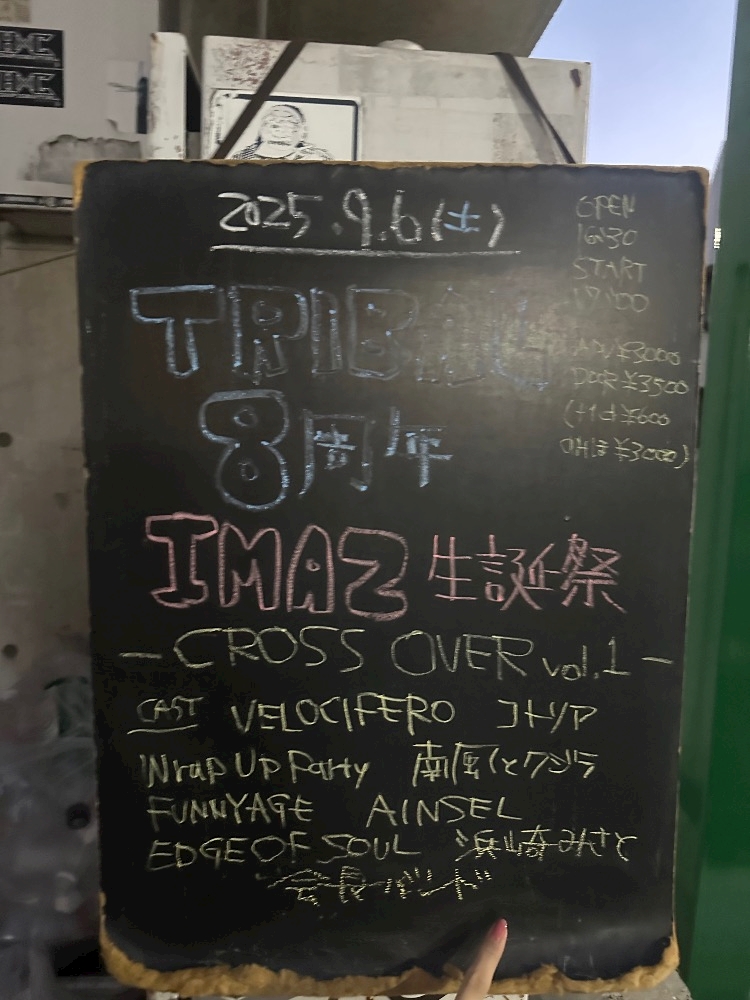 2025.9.6(土)
OPEN
16:30
START
17:00
ADV ¥3000
DOOR ¥3500
¥600
¥3000)
TRIBAL
8周年
IMAZ 生誕祭
- CROSS OVER vol.1 -
CAST VELOCIFERO コトリア
Wrap Up Party 南風とクジラ
FUNNYAGE AINSEL
EDGE OF SOUL 浜崎みさと
会長バンド